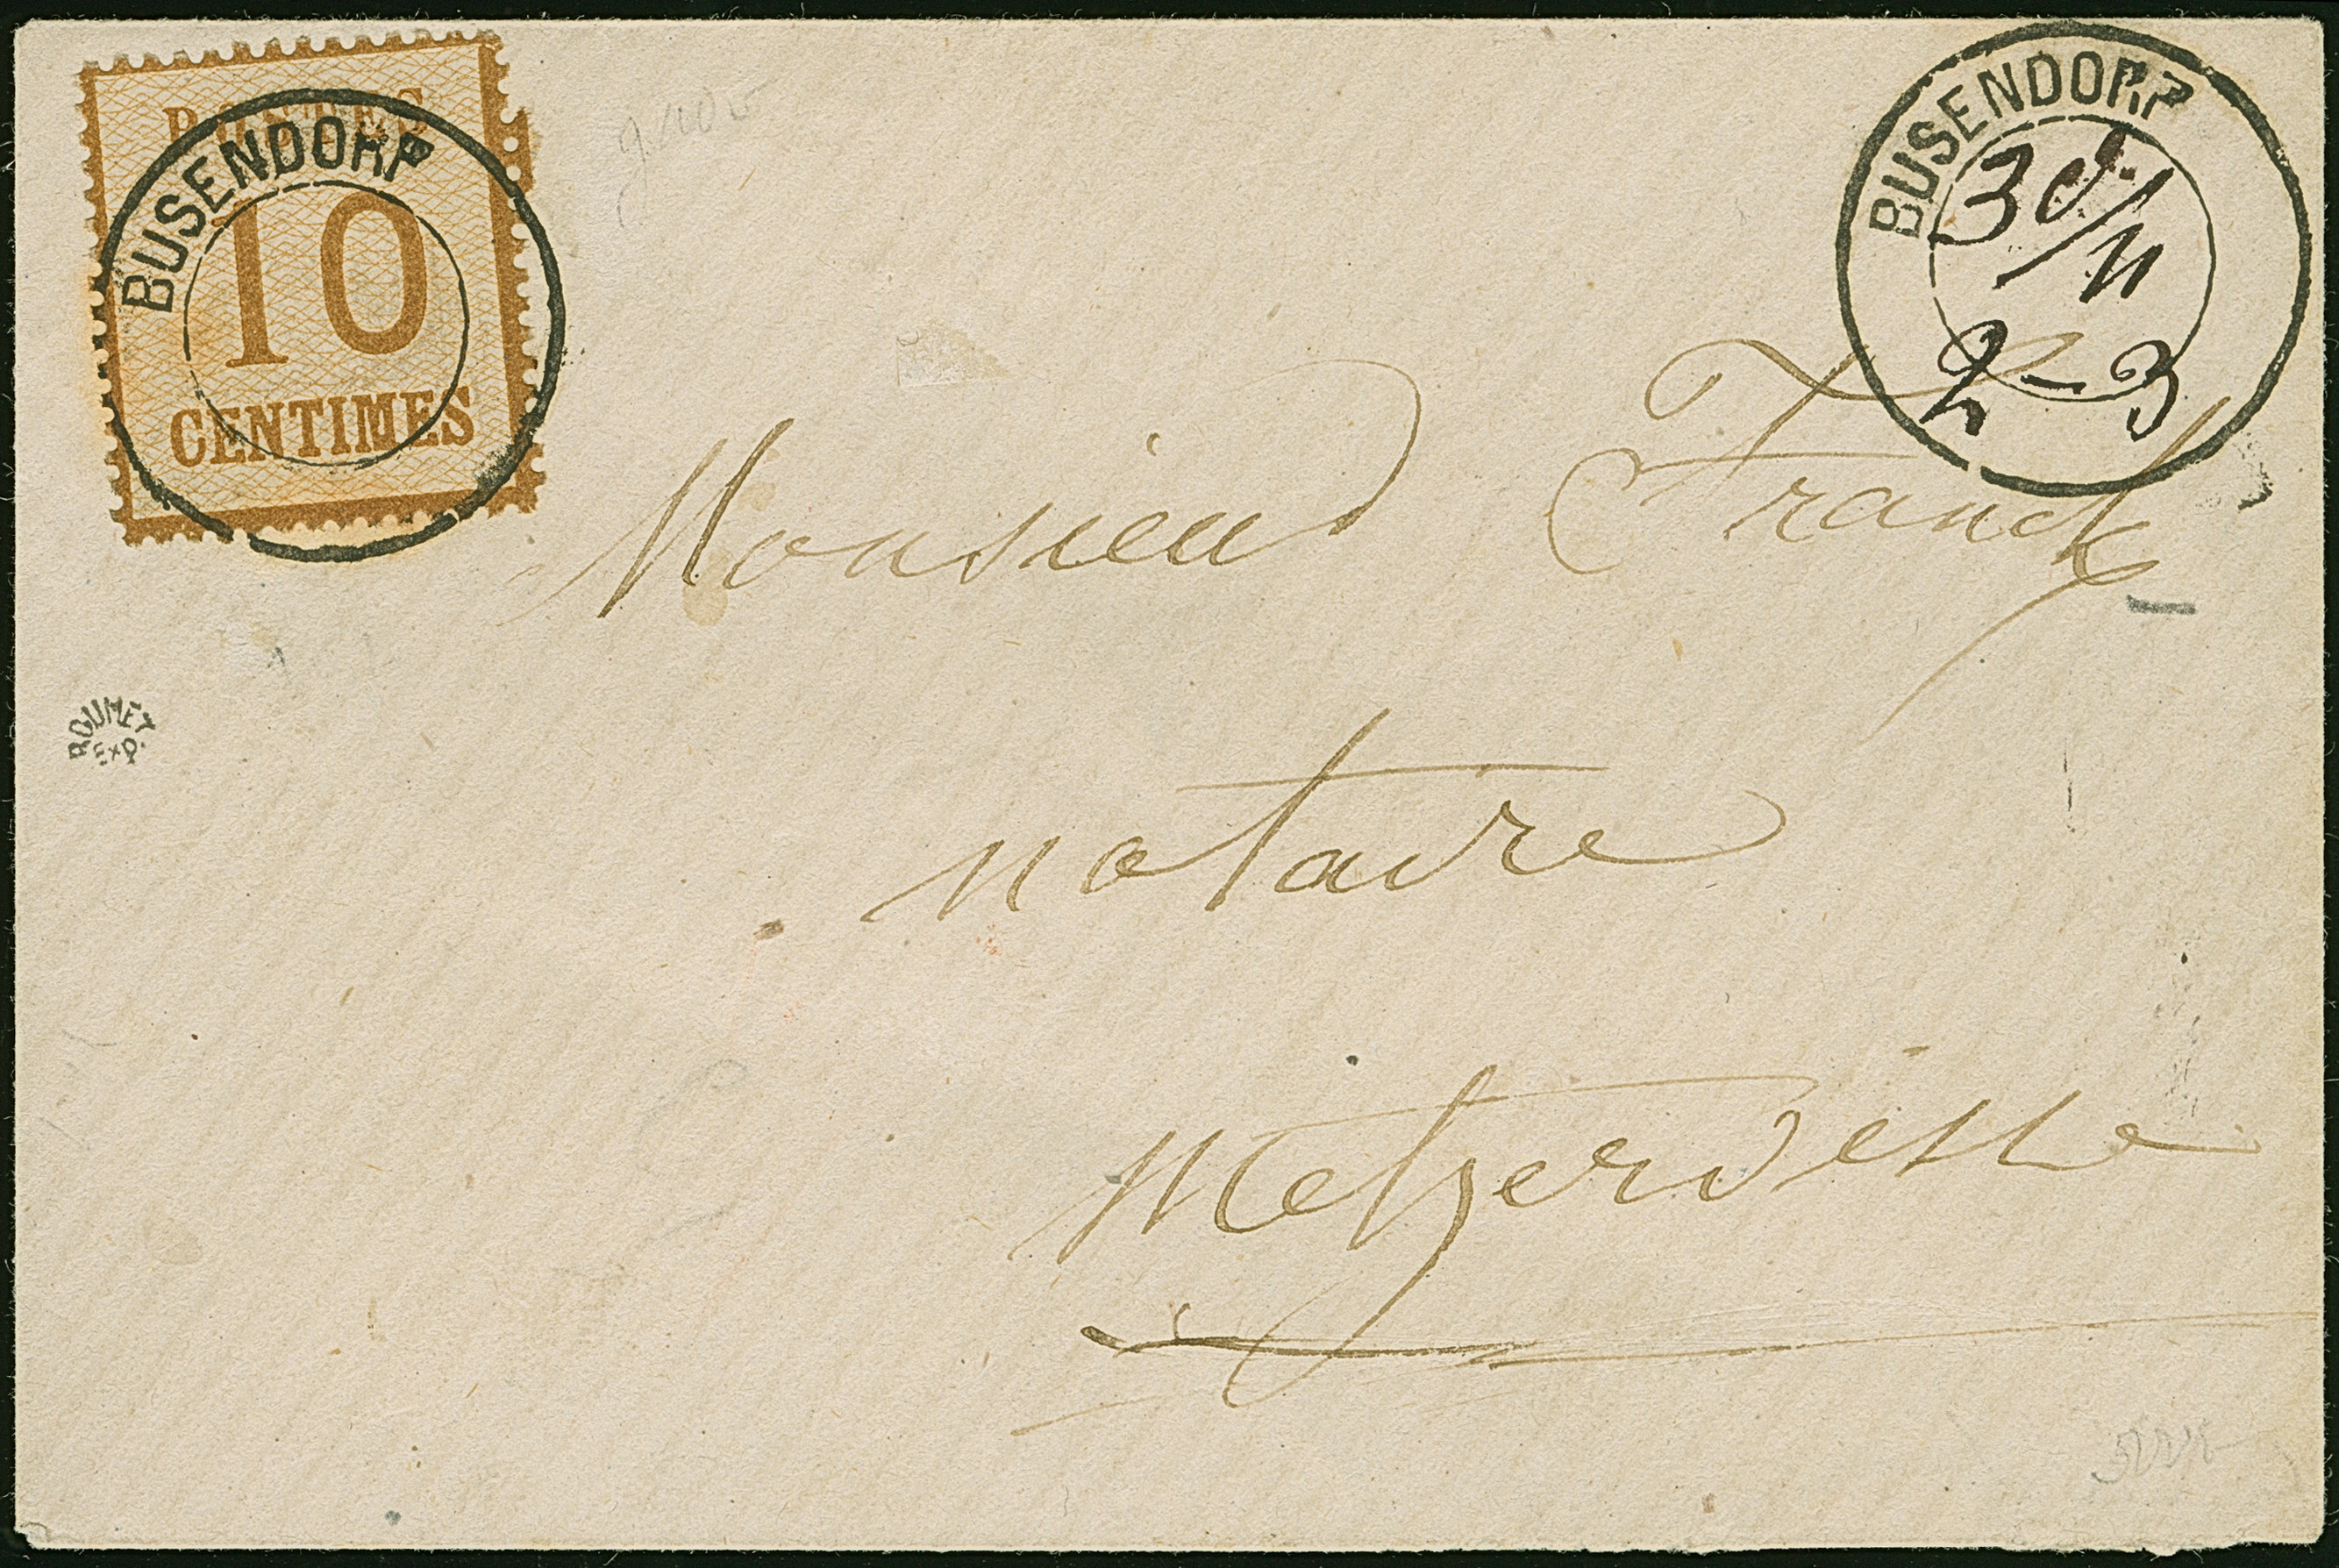 POSTES
10
CENTIMES
BUSENDORF
BUSENDORF
30/11
2-3
Monsieur Franck
notaire
Metzervisse
ROUMET
EXP.